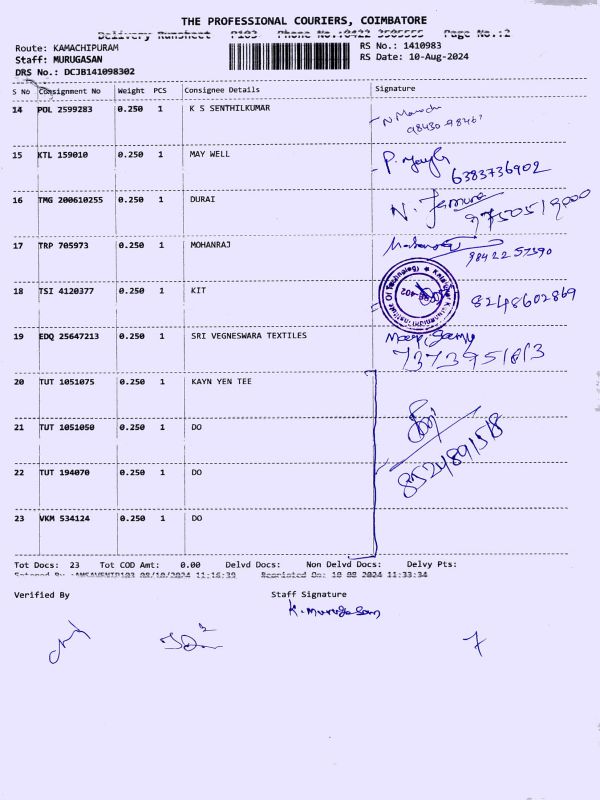 THE PROFESSIONAL COURIERS, COIMBATORE
Delivery Runsheet P103 Phone No.:0422 3505555 Page No.:2
Route: KAMACHIPURAM RS No.: 1410983
Staff: MURUGASAN RS Date: 10-Aug-2024
DRS No.: DCJB141098302
S No Consignment No Weight PCS Consignee Details Signature
14 POL 2599283 0.250 1 K S SENTHILKUMAR
15 KTL 159010 0.250 1 MAY WELL
6383736902
16 TMG 200610255 0.250 1 DURAI N.
17 TRP 705973 0.250 1 MOHANRAJ
98422 57390
18 TSI 4120377 0.250 1 KIT 8248602869
19 EDQ 25647213 0.250 1 SRI VEGNESWARA TEXTILES
20 TUT 1051075 0.250 1 KAYN YEN TEE
21 TUT 1051050 0.250 1 DO
22 TUT 194070 0.250 1 DO
23 VKM 534124 0.250 1 DO
Tot Docs: 23 Tot COD Amt: 0.00 Delvd Docs: Non Delvd Docs: Delvy Pts:
08/10/2024 11:16:39 Reprinted On: 10 08 2024 11:33:34
Verified By Staff Signature
K. Murugasan
7